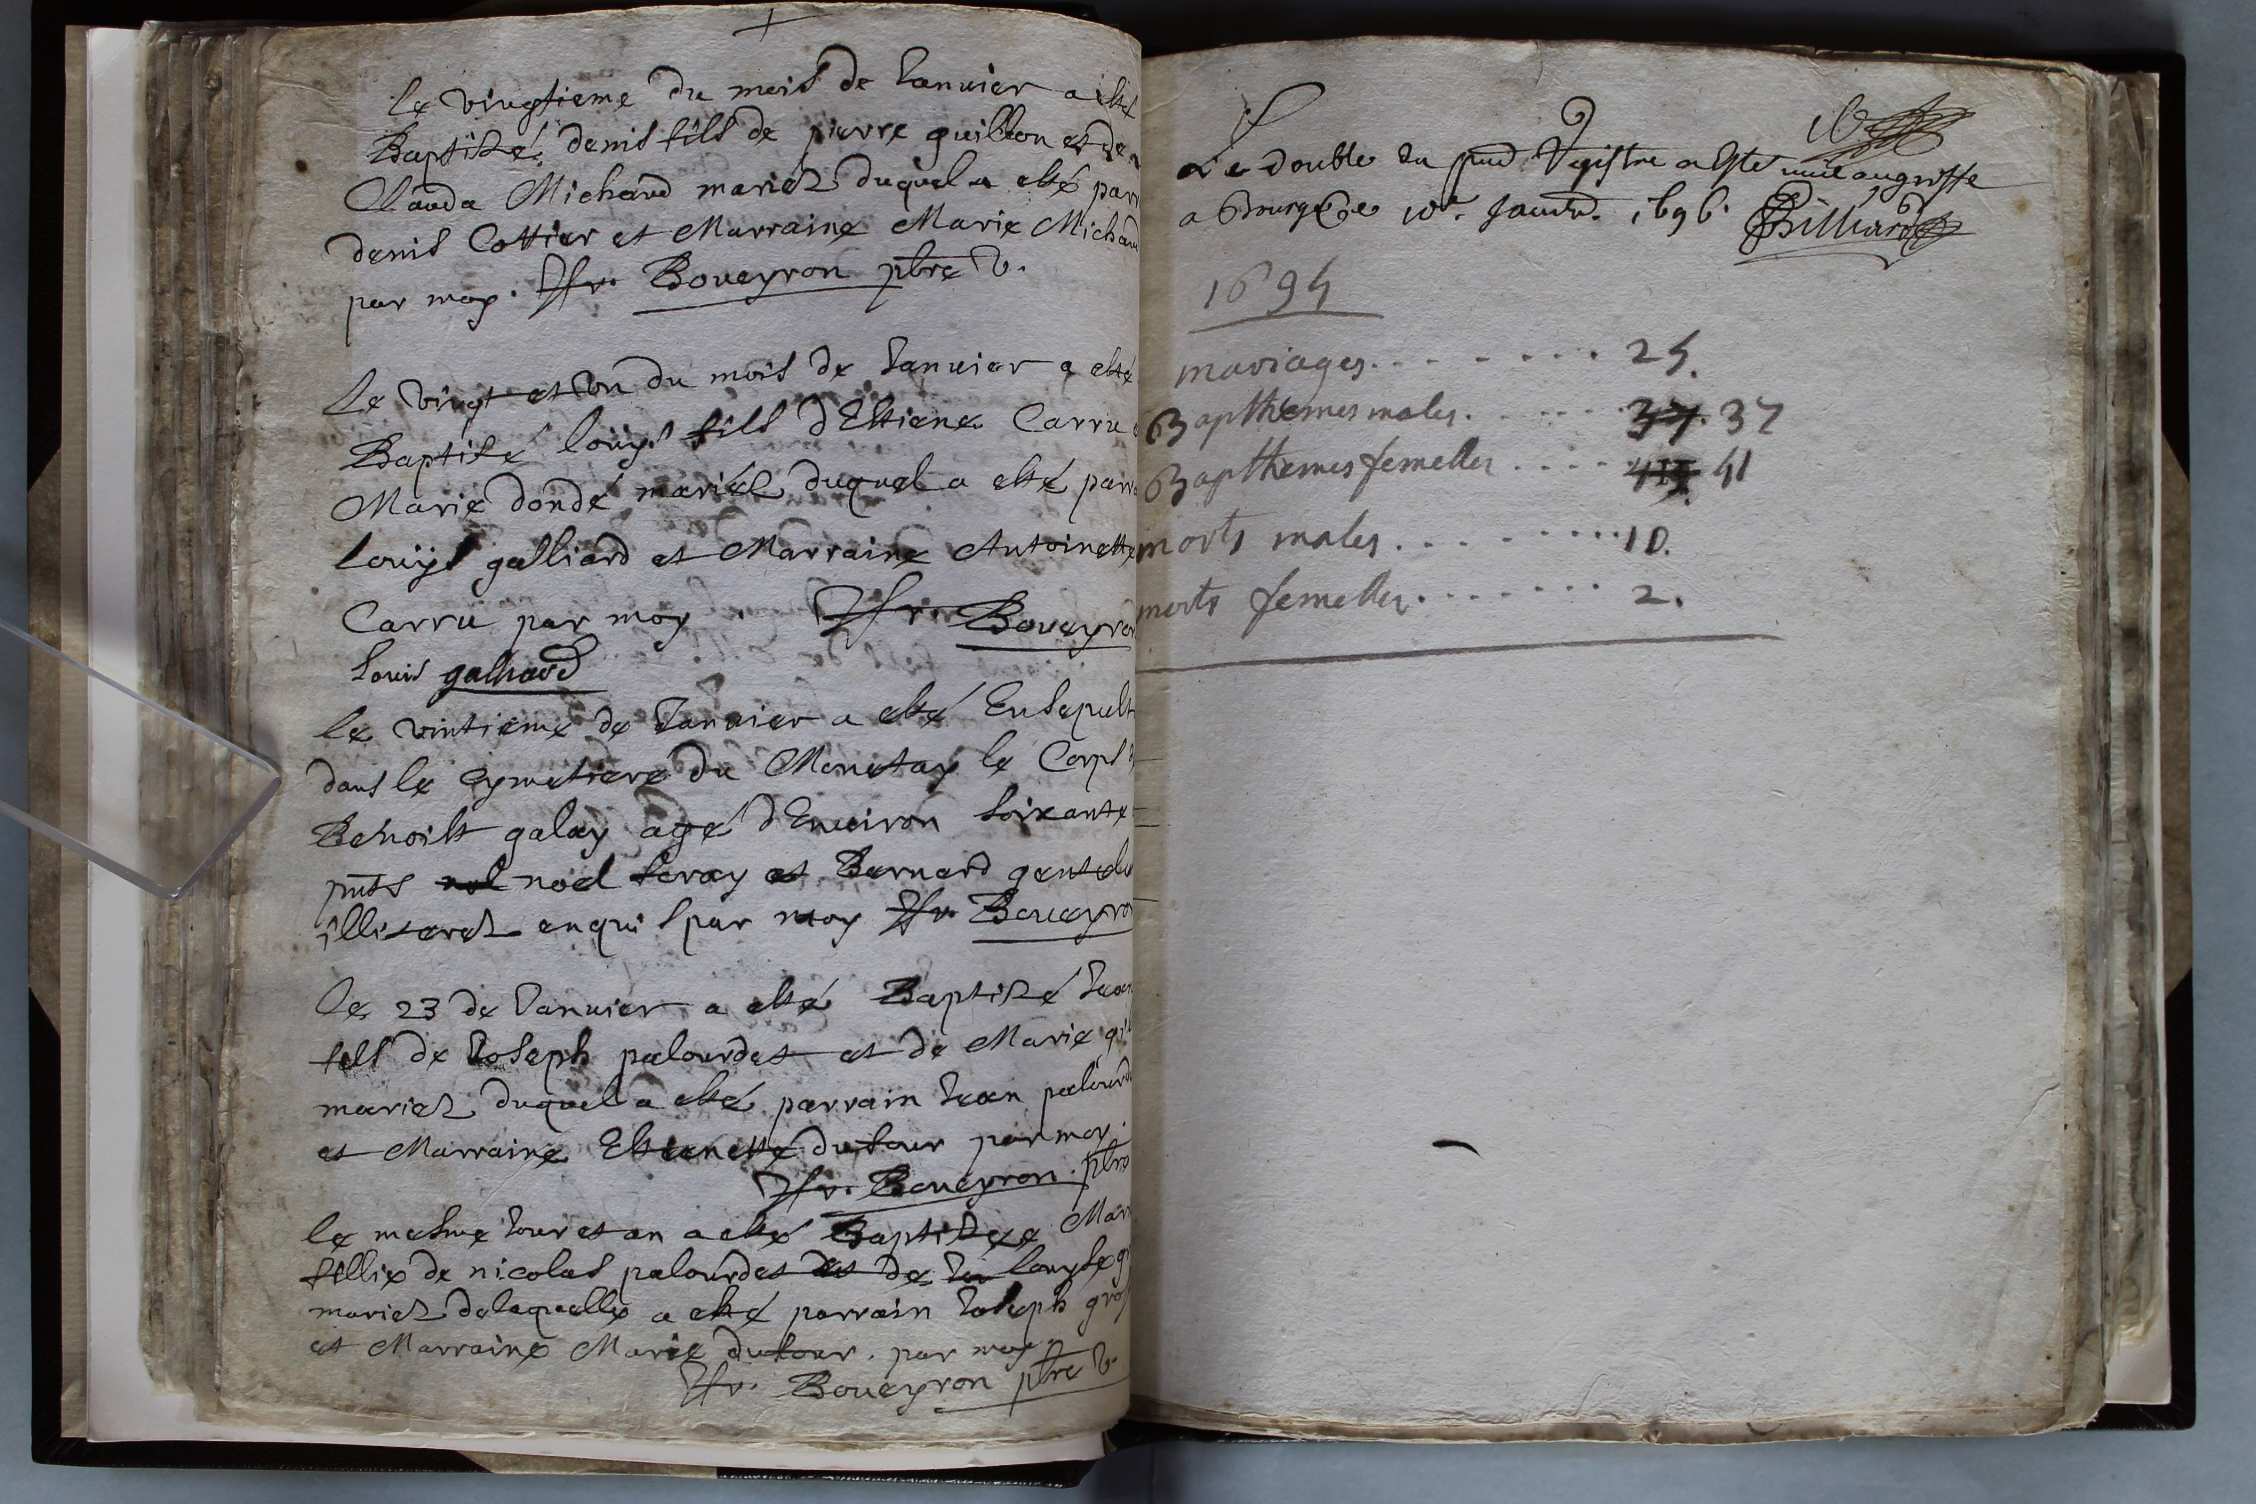 Le vingtieme du mois de Ianvier a esté
Baptisé denis fils de pierre guillon et de
Clauda Michaud mariez duquel a esté parr
denis Cottier et Marraine Marie Michau
par moy. Boueyron pbre v.
Le vingt et un du mois de Ianvier a esté
Baptisé loüys fils d'Estiene Carru
Marie dondé mariez duquel a esté parr
Louÿs galliard et Marraine Antoinette
Carru par moy Boueyron
Louis galhard
Le vintieme de Ianvier a esté Ensepult
dans le cymetiere du Monetay le Corps
Benoist galay agé d'Environ soixante
pnts noel et Bernard
illiterez enquis par moy Boueyron
Le 23 de Ianvier a esté Baptisé Iean
fils de Ioseph palourdet et de Marie
mariez duquel a esté parrain Iean palourd
et Marraine Estienette dutour par moy.
Boueyron pbre
le mesme Iour et an a esté Baptisée Mari
fillie de nicolas palourdet de louyse
mariez delaquelle a esté parrain Ioseph gro
et Marraine Marie dutour. par moy
Boueyron pbre v.
16
Le double du pnd Registre a este mis au greffe
a Bourg ce 10e. Janvr. 1696. Billiard
1694
mariages. . . . . . . . 25.
Bapthemes males. . . . . . 37
Bapthemes femelles . . . . 41
morts males . . . . . . . . 10.
morts femelles. . . . . . . 2.